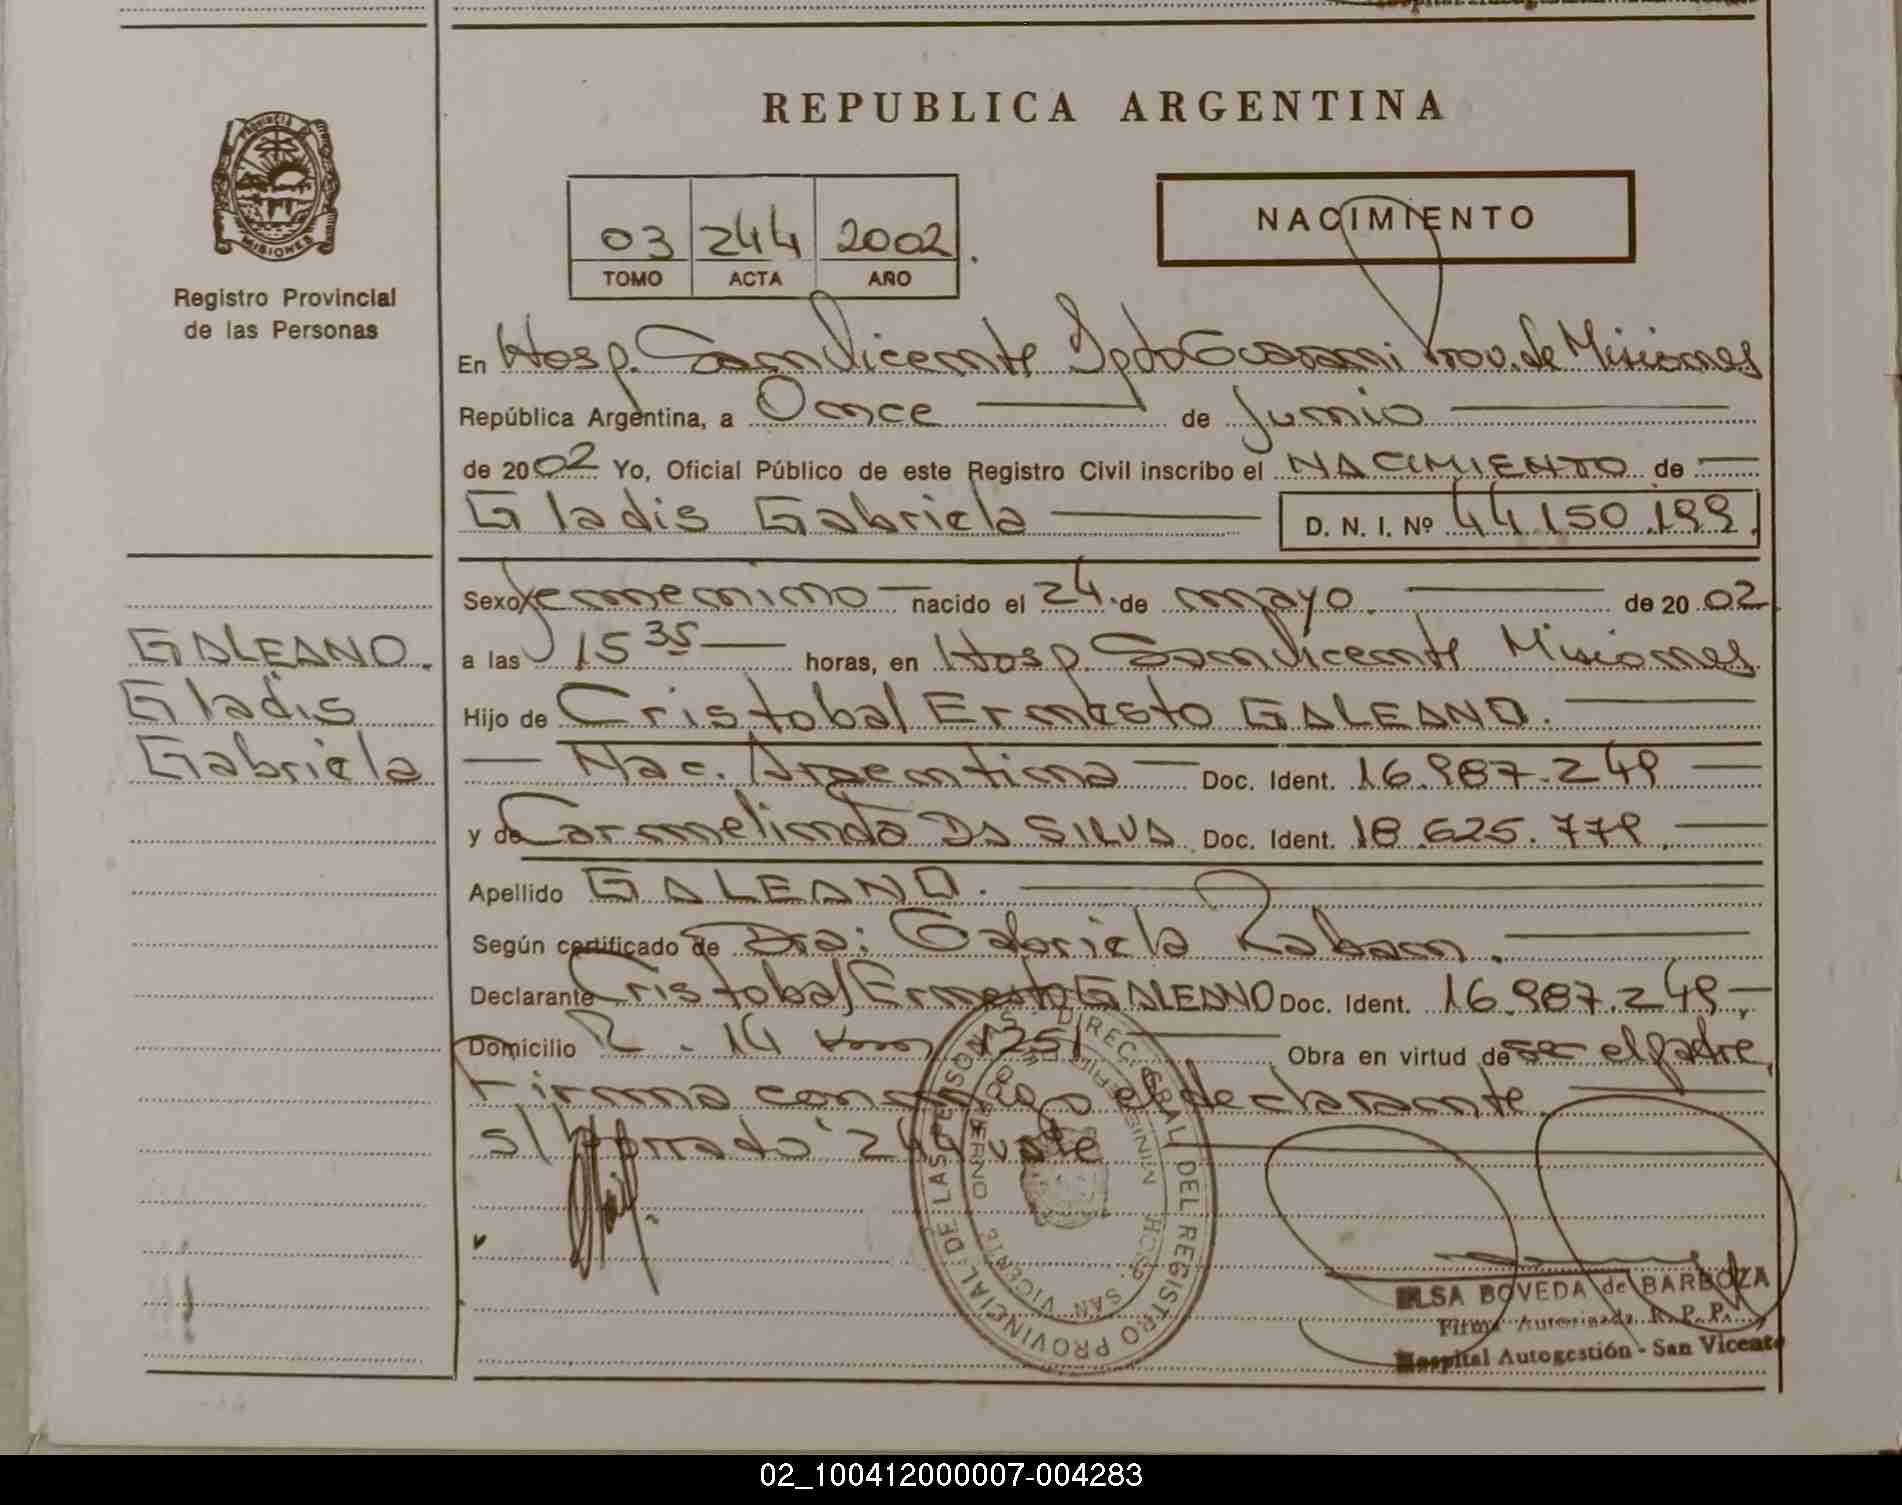 REPUBLICA ARGENTINA
PROVINCIA DE
MISIONES
Registro Provincial
de las Personas
03 244 2002
TOMO ACTA AÑO
NACIMIENTO
En Hosp. San Vicente Dpto Guarani Prov. de Misiones
República Argentina, a Once de Junio
de 2002 Yo, Oficial Público de este Registro Civil inscribo el NACIMIENTO de
Gladis Gabriela D. N. I. Nº 44.150.199.
Sexo femenino nacido el 24 de mayo de 2002
a las 15 35 horas, en Hosp. San Vicente Misiones
Hijo de Cristobal Ernesto GALEANO.
Nac. Argentina Doc. Ident. 16.987.249
y de Carmelinda DA SILVA Doc. Ident. 18.625.779.
Apellido GALEANO.
Según certificado de Dra: Gabriela Raban.
Declarante Cristobal Ernesto GALEANO Doc. Ident. 16.987.249
Domicilio R. 14 Km 1251 Obra en virtud de ser el padre,
Firma conmigo el declarante.
s/borrado 244 vale
GALEANO.
Gladis
Gabriela
DIREC. GRAL. DEL REGISTRO PROVINCIAL DE LAS PERSONAS
HOSP. SAN VICENTE
ELSA BOVEDA de BARBOZA
Firma Autorizada R. P. P.
Hospital Autogestión - San Vicente
02_100412000007-004283